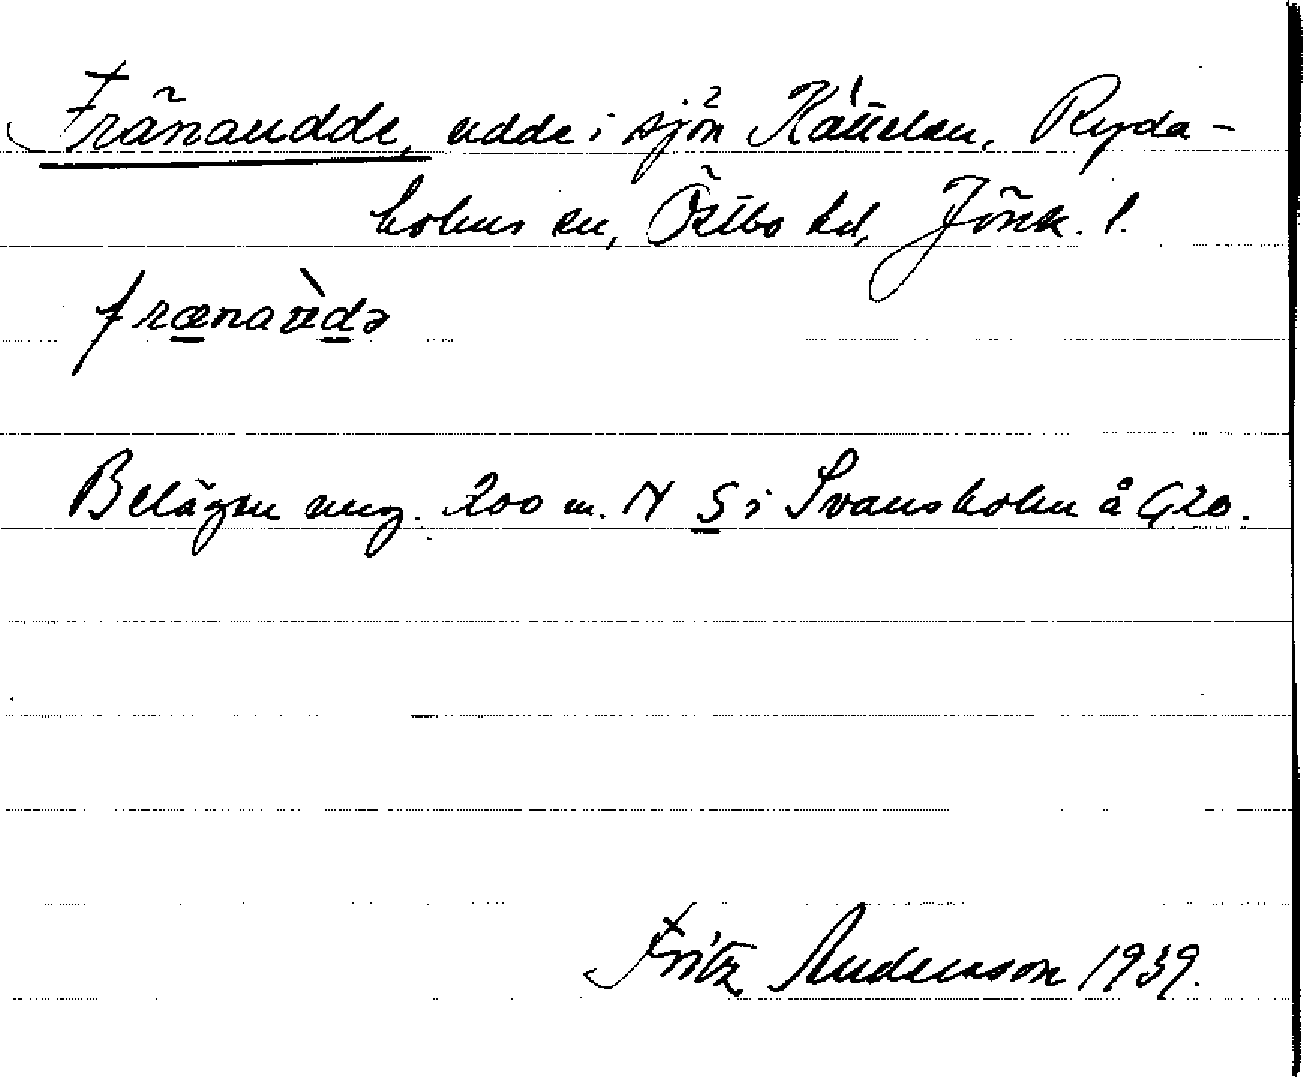 Fränaudde, udde i sjön Rättelen, Ryda-
holms sn, Östbo hd, Jönk. l.
frænaùdə
Belägen ung. 200 m. N S i Svansholm å Geo.
Fritz Andersson 1939.